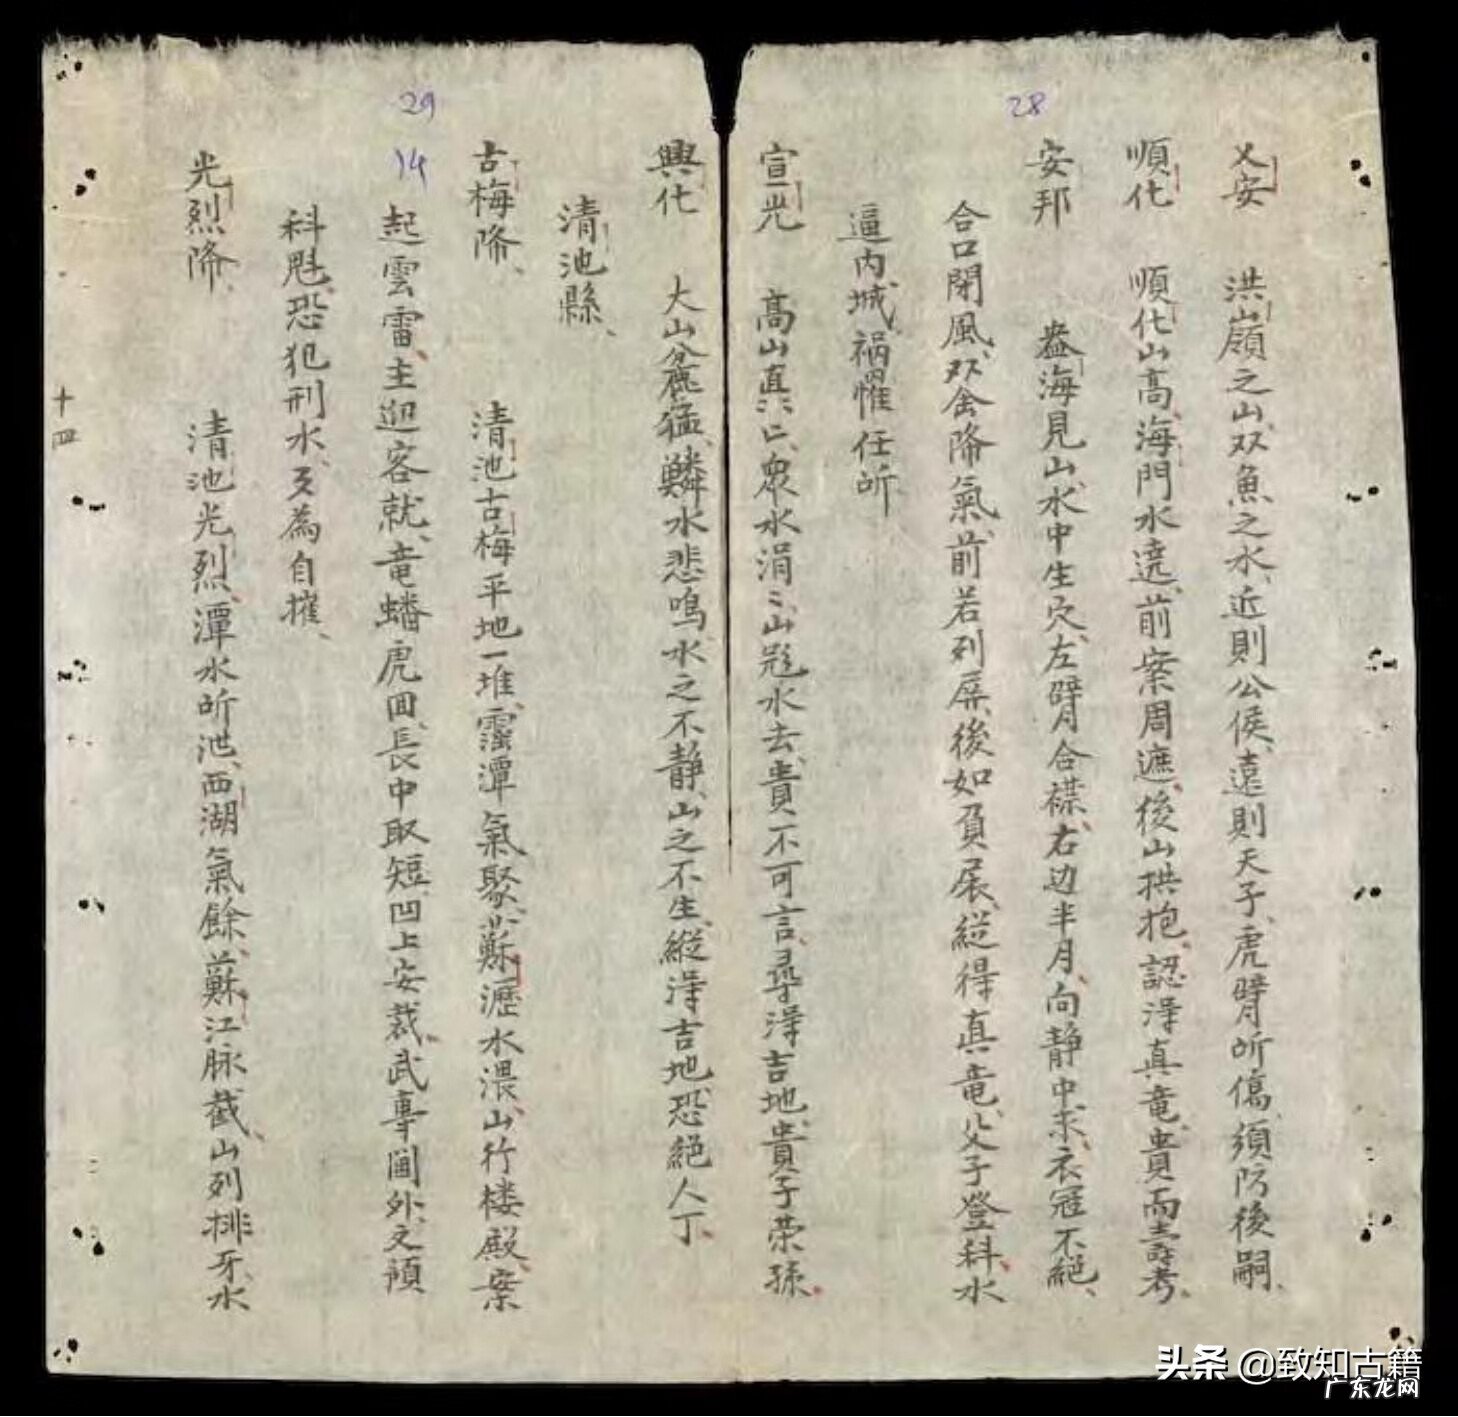 28
乂安 洪嶺之山双魚之水、近則公侯、遠則天子、虎臂所傷、須防後嗣、
順化 順化山高、海門水遶、前案周遮、後山拱抱、認得真竜、貴而壽考、
安邦 盎海見山、水中生穴、左臂合襟、右边半月、向静中求、衣冠不絕、
合口閉風、双金降氣、前若列屏、後如負扆、縱得真竜、父子登科、水
逼内城、禍罹任所
宣光 高山真〻、衆水涓〻、山起水去、貴不可言、尋得吉地、貴子荣孫、
興化 大山麁猛、鱗水悲鳴、水之不静、山之不生、縱得吉地、恐絕人丁、
清池縣、
29
14
古梅降、 清池古梅、平地一堆、潭氣聚、蘇瀝水濃、山行楼殿、案
起雲雷、主迎客就、竜蟠虎回、長中取短、凹上安裁、武事閫外、文預
科魁、恐犯刑水、为自摧、
光烈降、 清池光烈、潭水所池、西湖氣餘、蘇江脉截、山列排牙、水
十四
头条 @致知古籍
广东龙网